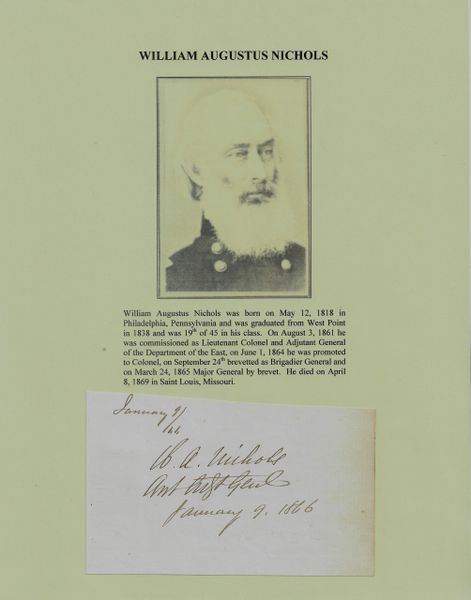 WILLIAM AUGUSTUS NICHOLS
William Augustus Nichols was born on May 12, 1818 in
Philadelphia, Pennsylvania and was graduated from West Point
in 1838 and was 19th of 45 in his class. On August 3, 1861 he
was commissioned as Lieutenant Colonel and Adjutant General
of the Department of the East, on June 1, 1864 he was promoted
to Colonel, on September 24th brevetted as Brigadier General and
on March 24, 1865 Major General by brevet. He died on April
8, 1869 in Saint Louis, Missouri.
January 9/
/66
W. A. Nichols
Asst Adjt Genl
January 9. 1866